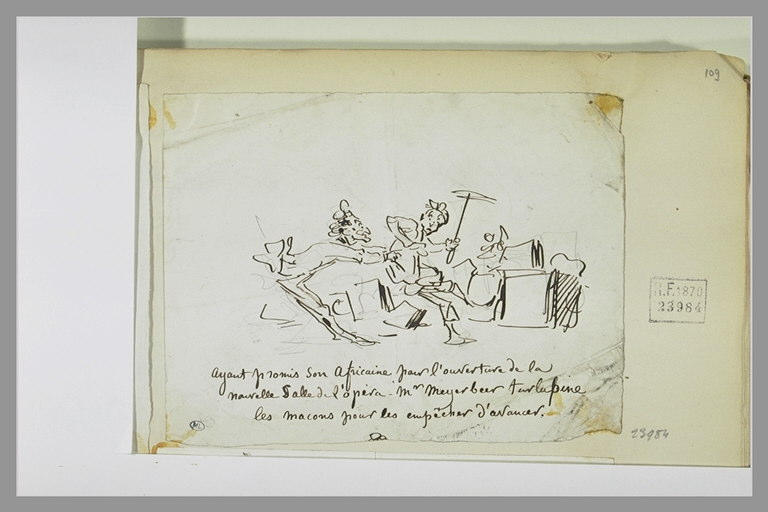 109
ayant promis son Africaine pour l'ouverture de la
nouvelle Salle de l'opéra - Mr Meyerbeer turlupine
les macons pour les empêcher d'avancer.
R.F. 1870
23984
23984